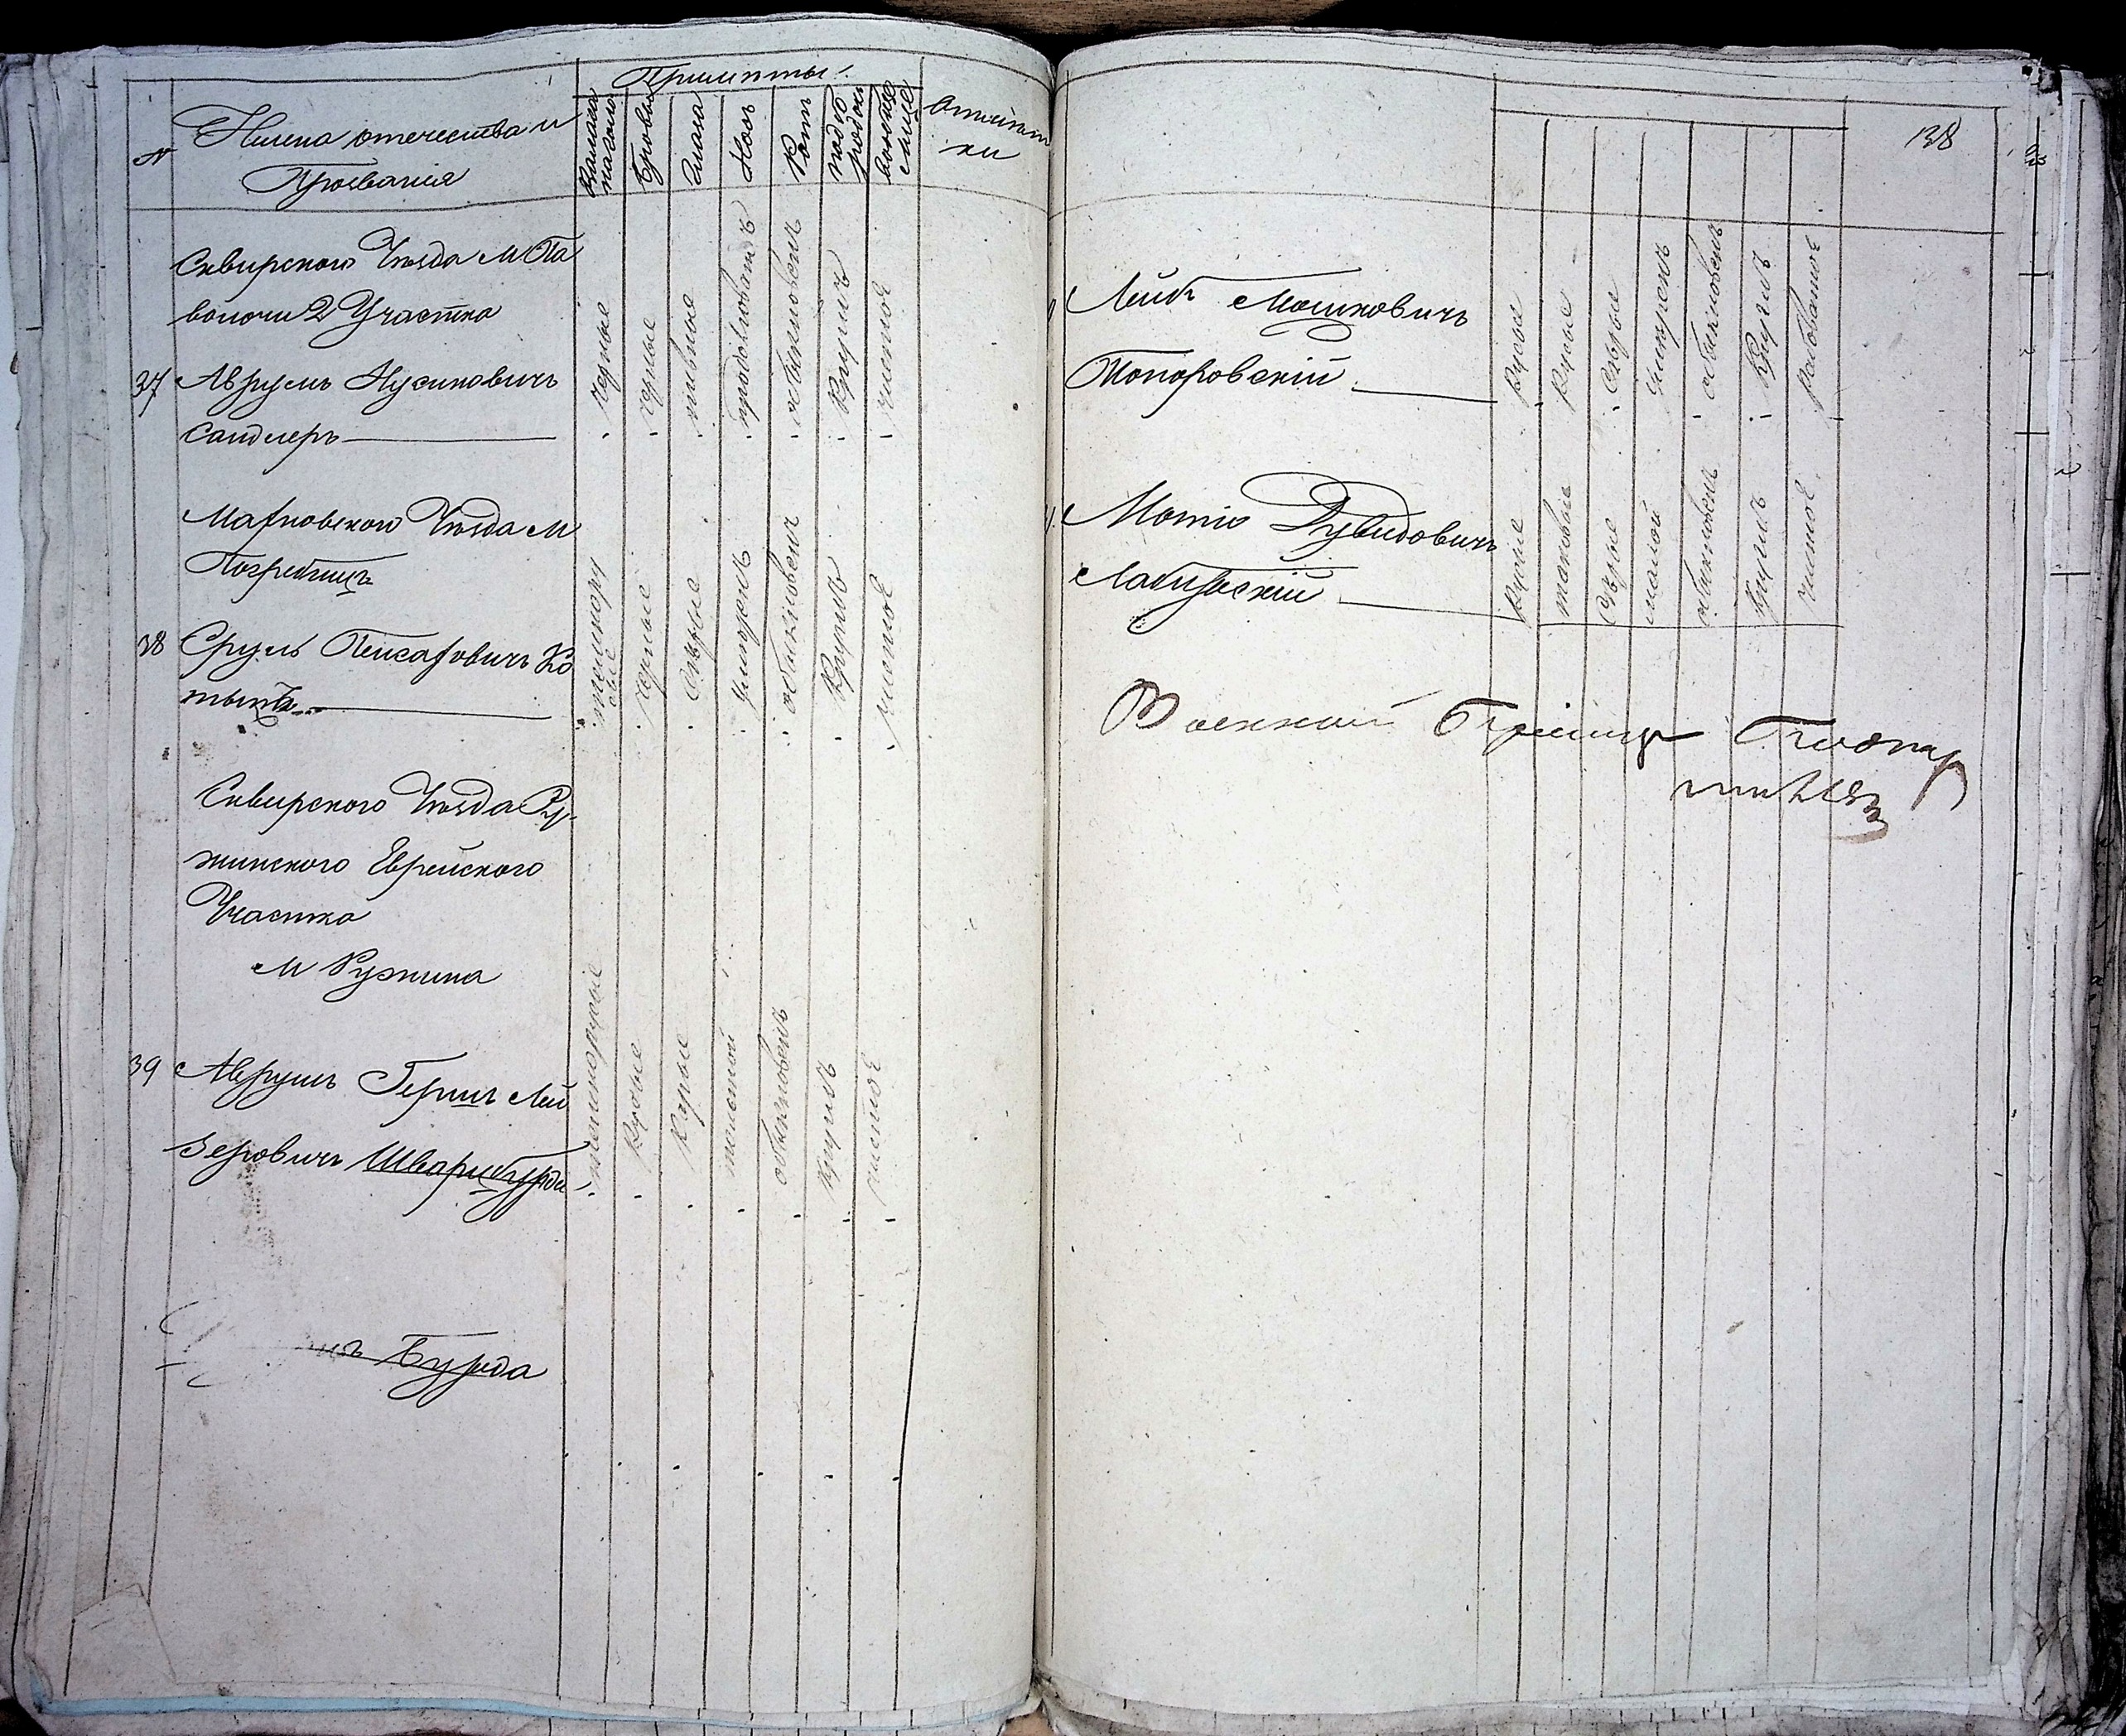 Примѣты
№
Имена отечества и
Прозвания
Волоса
на голове
Брови
Глаза
Носъ
Ротъ
подбо
родокъ
вообще
лице
Отмѣт
ки
Сквирского Уѣзда М Па
волочи 2 Участка
37 Аврумъ Нусимовичъ
Сандлеръ
черные
черные
обыкновенъ
Круглъ
чистое
Махновского Уѣзда М
Погребищъ
38 Сруль Пейсаховичъ Ко
темнору
сые
черные
Сѣрые
умѣренъ
обыкновенъ
Круглъ
чистое
Сквирского Уѣзда Ру
жинского Еврейского
Участка
М Ружина
39 Аврумъ Гершъ Лей
зеровичъ Шварцбурда
темнорусые
Русые
Карые
толстой
обыкновенъ
круглъ
чистое
Бурда
138
Лейб Мошковичъ
Топоровскій
Русые
Русые
Сѣрые
Умѣренъ
обыкновенъ
Круглъ
рабоватое
Мотio Дувидовичъ
Русые
таковые
Сѣрые
малой
обыкновенъ
Круглъ
чистое